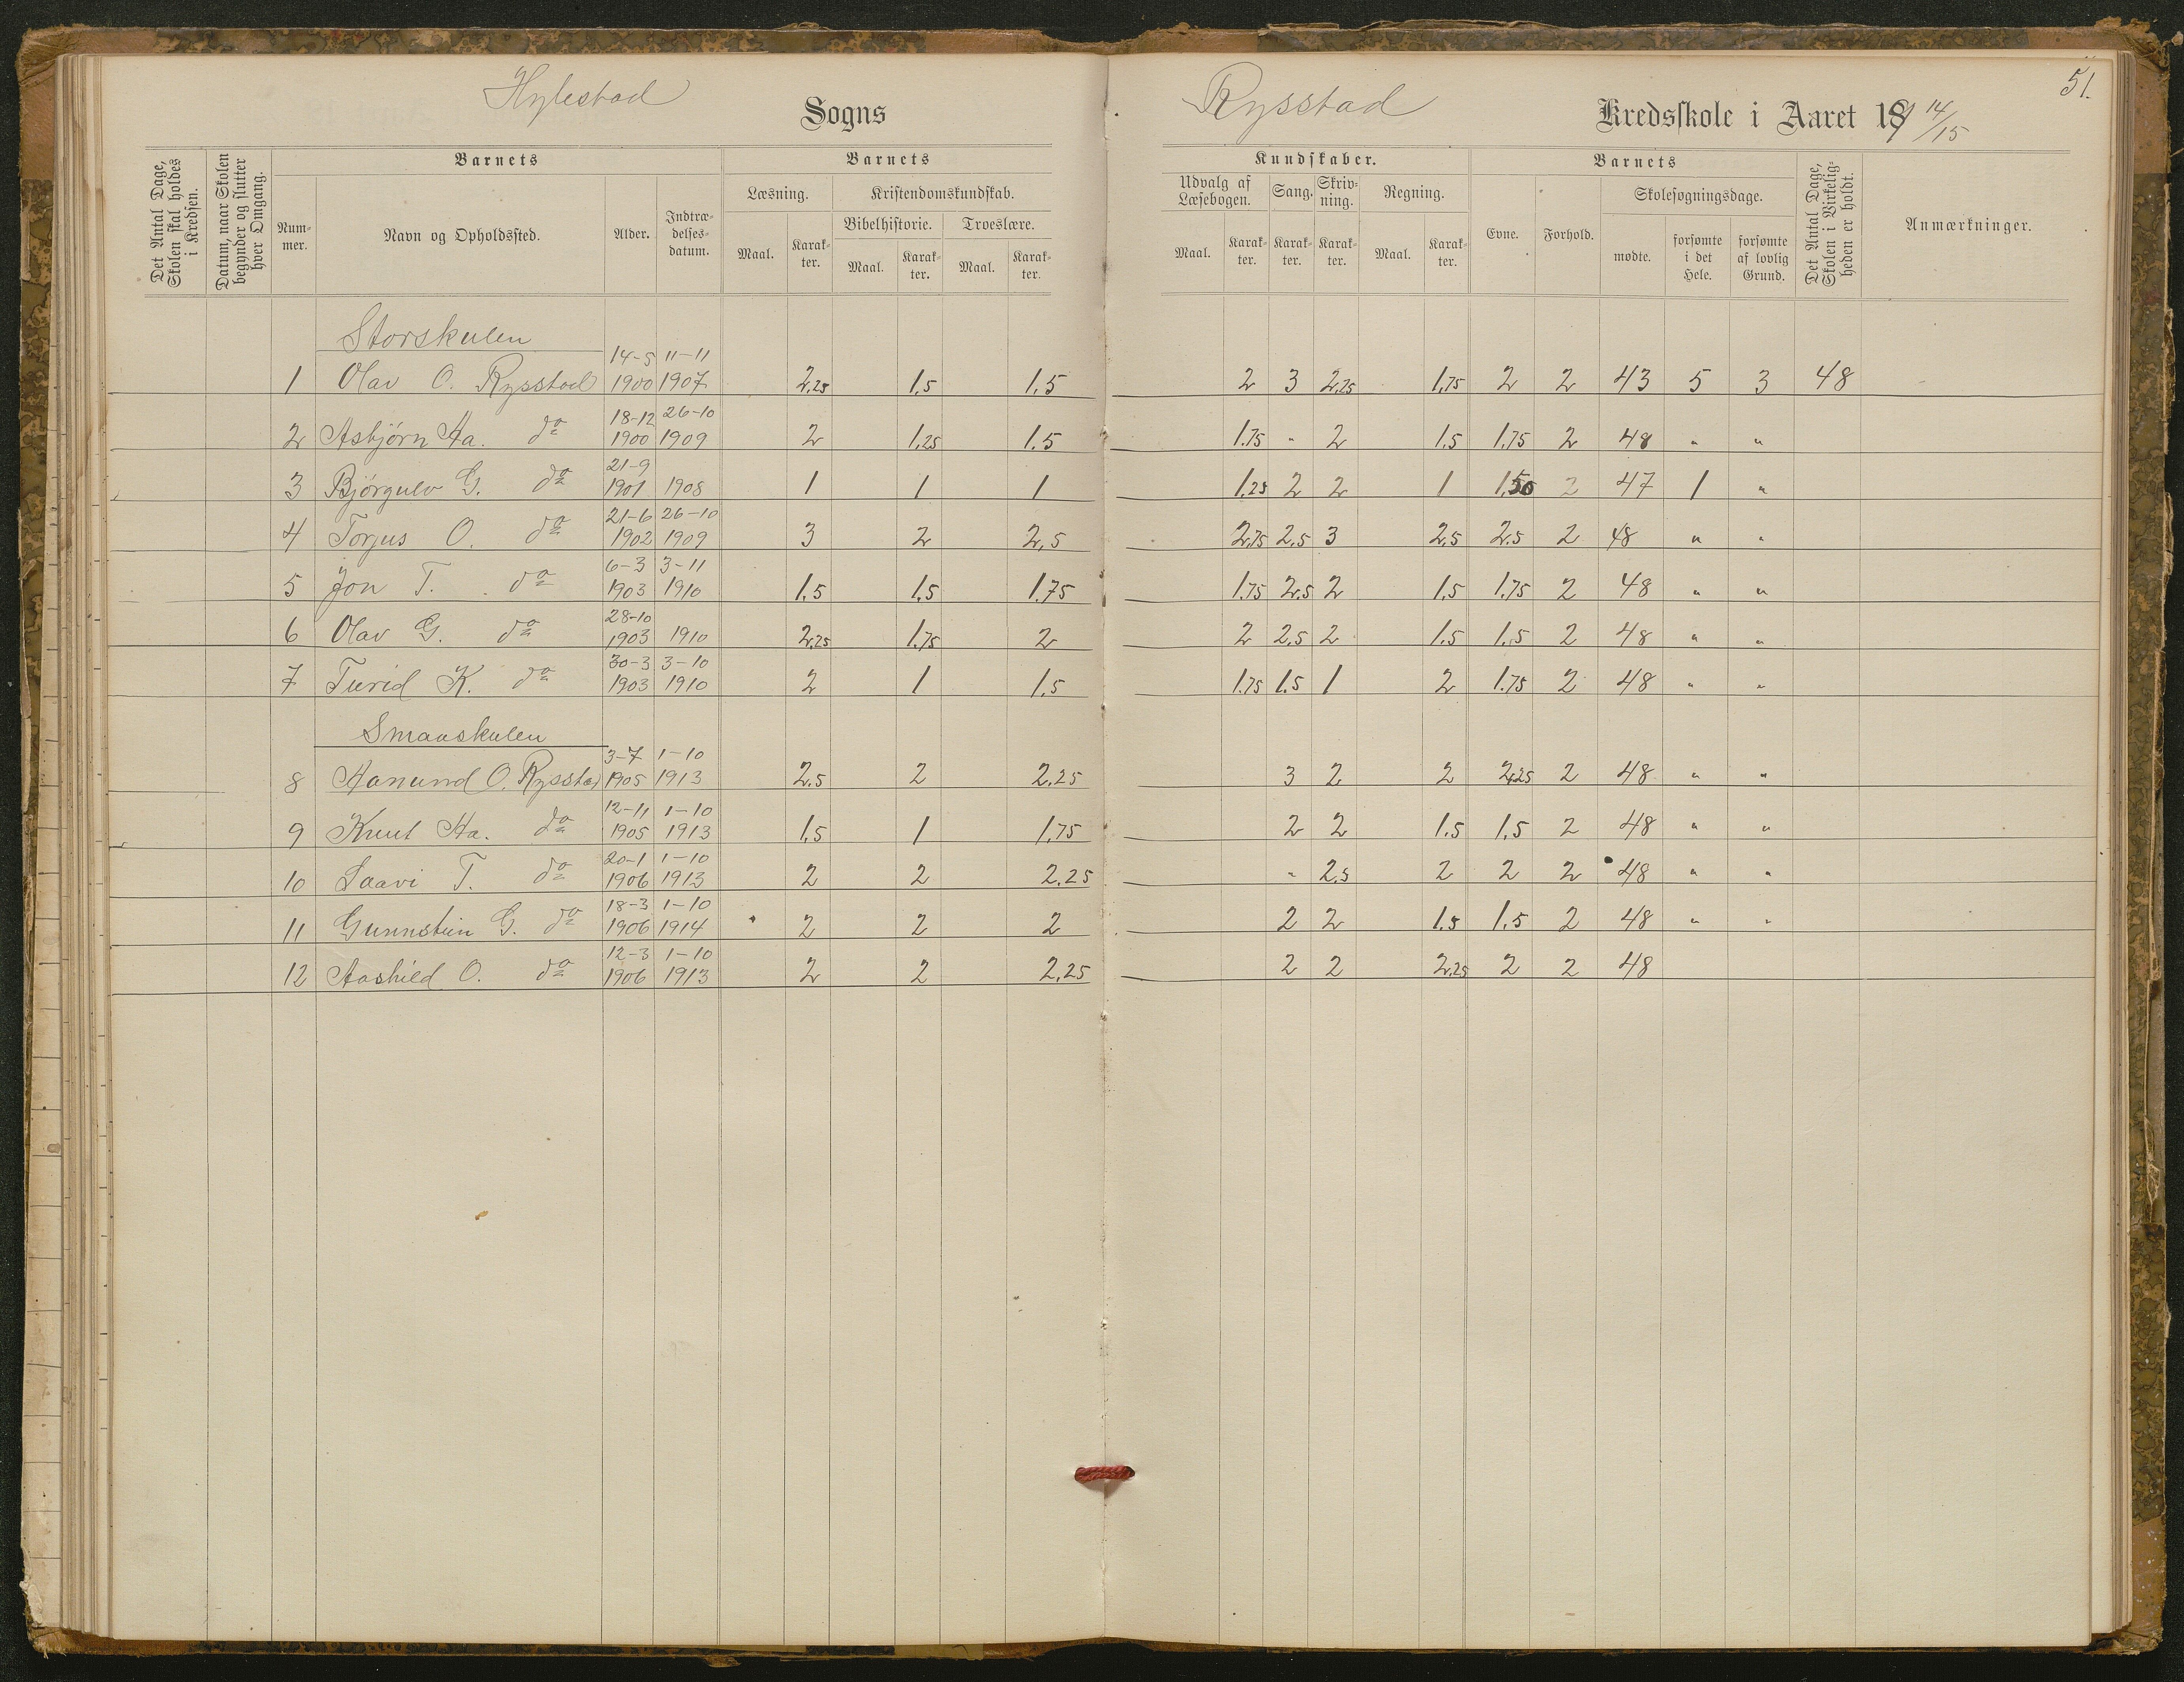 Hylestad Sogns
Rysstad Kredsskole i Aaret 1914/15
51.
Det Antal Dage, Skolen skal holdes i Kredsen.
Datum, naar Skolen begynder og slutter hver Omgang.
Barnets
Nummer.
Navn og Opholdssted.
Alder.
Indtrædelsesdatum.
Barnets
Læsning.
Maal.
Karakter.
Kristendomskundskab.
Bibelhistorie.
Maal.
Karakter.
Troeslære.
Maal.
Karakter.
Kundskaber.
Udvalg af Læsebogen.
Maal.
Karakter.
Sang.
Karakter.
Skrivning.
Karakter.
Regning.
Maal.
Karakter.
Barnets
Evne.
Forhold.
Skolesøgningsdage.
mødte.
forsømte i det Hele.
forsømte af lovlig Grund.
Det Antal Dage, Skolen i Virkeligheden er holdt.
Anmærkninger.
Storskulen
1 Olav O. Rysstad 14-5 1900 11-11 1907 2,25 1,5 1,5 2 3 2,25 1,75 2 2 43 5 3 48
2 Asbjørn Aa. do 18-12 1900 26-10 1909 2 1,25 1.5 1.75 " 2 1.5 1.75 2 48 " "
3 Bjørgulv G. do 21-9 1901 1908 1 1 1 1.25 2 2 1 1.50 2 47 1 "
4 Torjus O. do 21-6 1902 26-10 1909 3 2 2,5 2,75 2.5 3 2,5 2.5 2 48 " "
5 Jon T. do 6-3 1903 3-11 1910 1.5 1.5 1.75 1.75 2.5 2 1.5 1.75 2 48 " "
6 Olav G. do 28-10 1903 1910 2,25 1.75 2 2 2.5 2 1.5 1.5 2 48 " "
7 Turid K. do 30-3 1903 3-10 1910 2 1 1.5 1.75 1.5 1 2 1.75 2 48 " "
Smaaskulen
8 Aanund O. Rysstad 3-7 1905 1-10 1913 2.5 2 2.25 3 2 2 2,25 2 48 " "
9 Knut Aa. do 12-11 1905 1-10 1913 1.5 1 1.75 2 2 1.5 1.5 2 48 " "
10 Laavi T. do 20-1 1906 1-10 1913 2 2 2.25 " 2.5 2 2 2 48 " "
11 Gunnstein G. do 18-3 1906 1-10 1914 2 2 2 2 2 1.5 1.5 2 48 " "
12 Aashild O. do 12-3 1906 1-10 1913 2 2 2.25 2 2 2,25 2 2 48